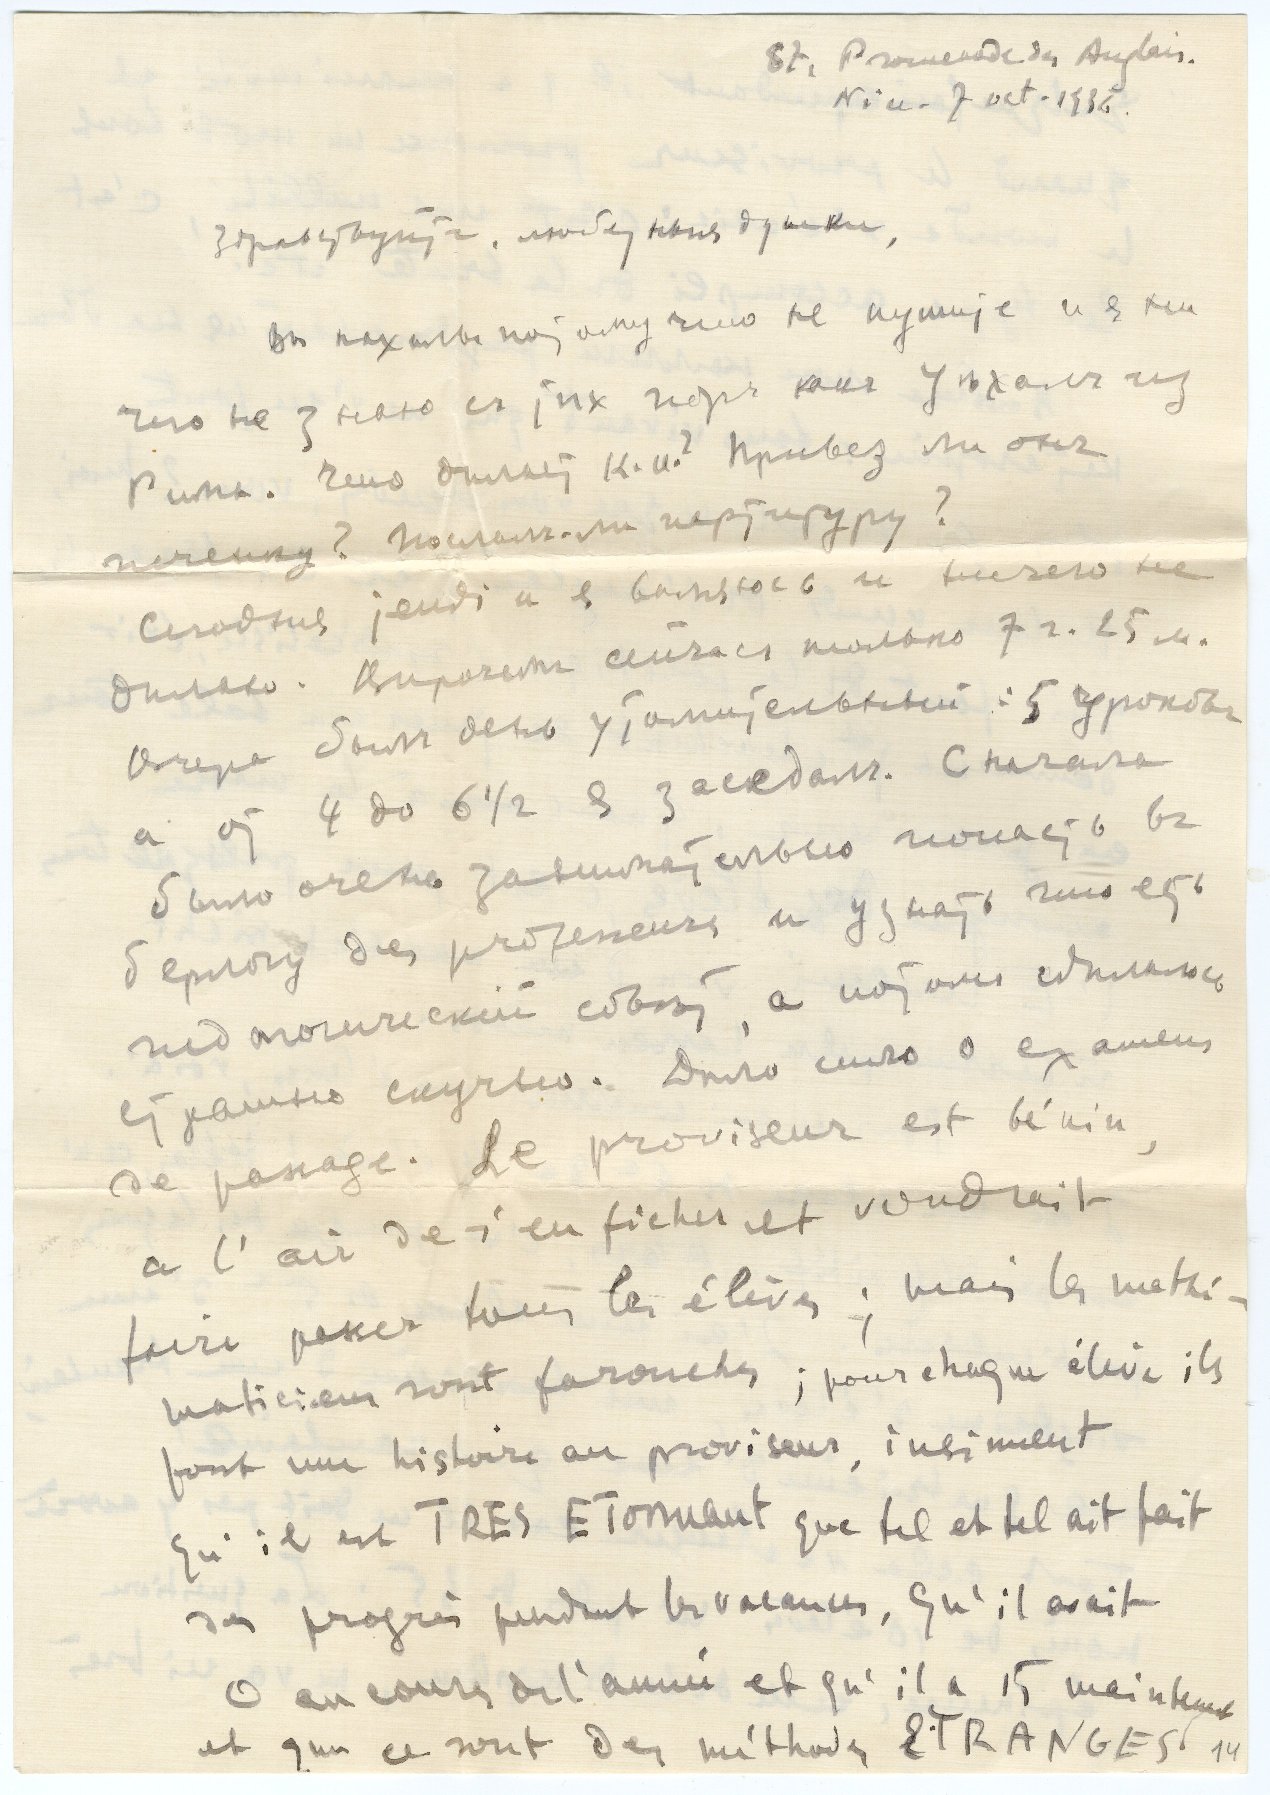 87, Promenade des Anglais.
Nice - 7 oct - 1936.
Здравствуйте, любезные душки,
Вы нахалы потому что не пишите и я ни
чего не знаю съ тех поръ какъ уѣхалъ из
Рима. Что дѣлает К.И.? Привез ли онъ
печенку? Послалъ-ли партитуру?
Сегодня jeudi и я валяюсь и ничего не
дѣлаю. Впрочемъ сейчасъ только 7 ч. 25 м.
Вчера былъ день утомительный : 5 уроковъ
а от 4 до 6 1/2 я заседалъ. Сначала
было очень занимательно попасть въ
берлогу des professeurs и узнать что есть
педагогический совѣт, а потомъ сдѣлалось
страшно скучно. Дѣло шло о examens
de passage. Le proviseur est bénin,
a l'air de s'en ficher et voudrait
faire passer tous les élèves ; mais les mathé-
maticiens sont farouches ; pour chaque élève ils
font une histoire au proviseur, insinuent
qu'il est TRES ETONNANT que tel et tel ait fait
des progrès pendant les vacances, qu'il avait
0 au cours de l'année et qu'il a 15 maintenant
et que ce sont des méthodes ETRANGES
14